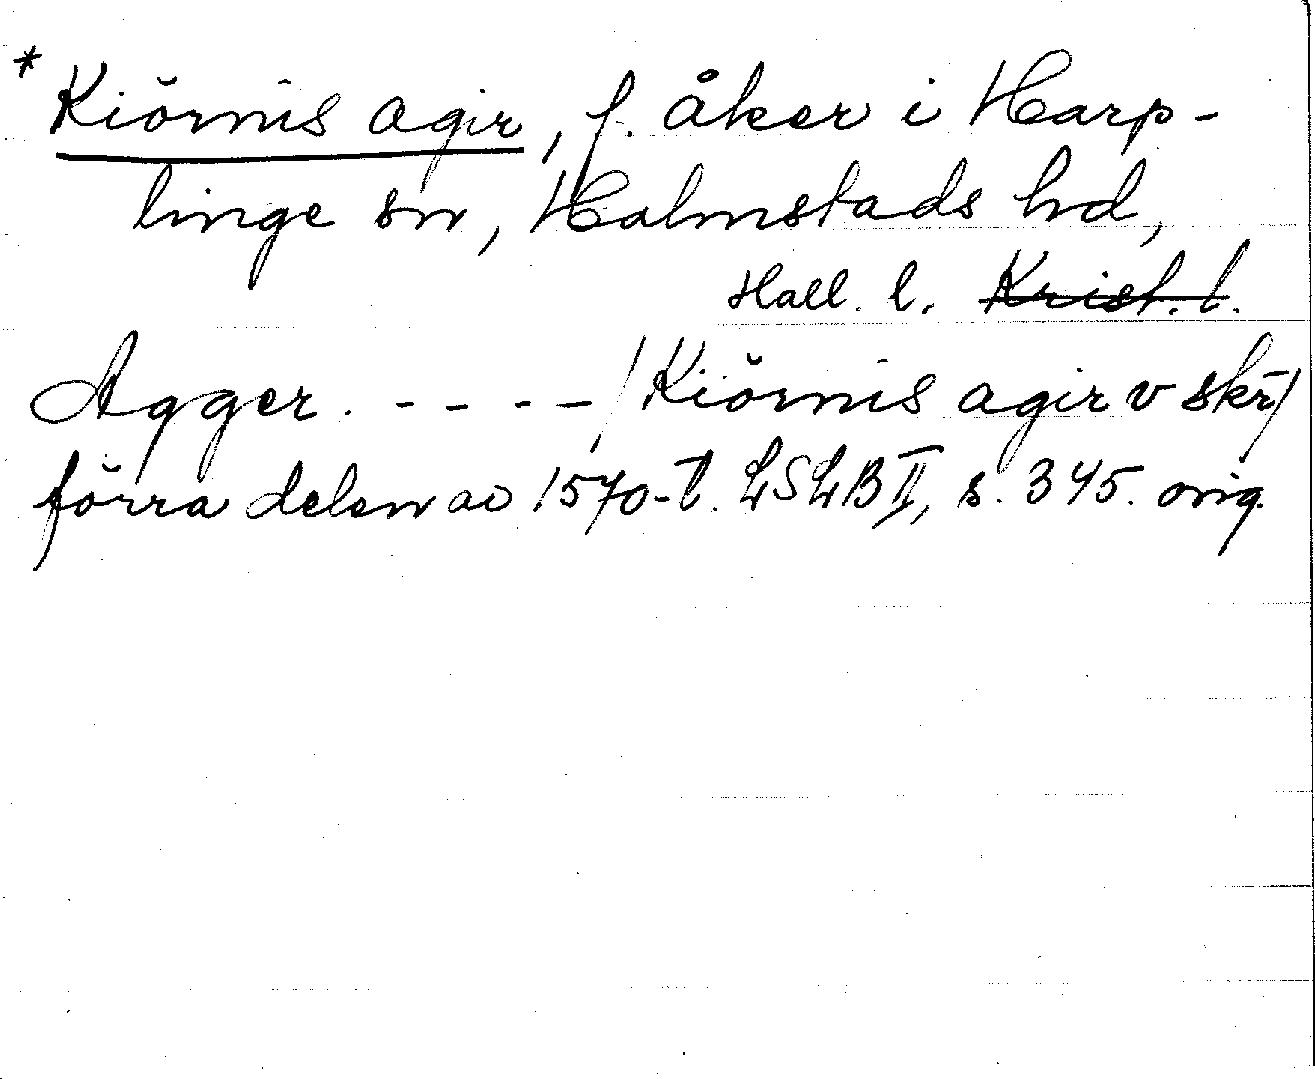 * Kiörnis agir, f. åker i Harp-
linge sn, Halmstads hd,
Hall. l. Krist. l.
Agger. - - - - / Kiörnis agir v skr/
förra delen av 1570-t. LSLB II, s. 345. orig.